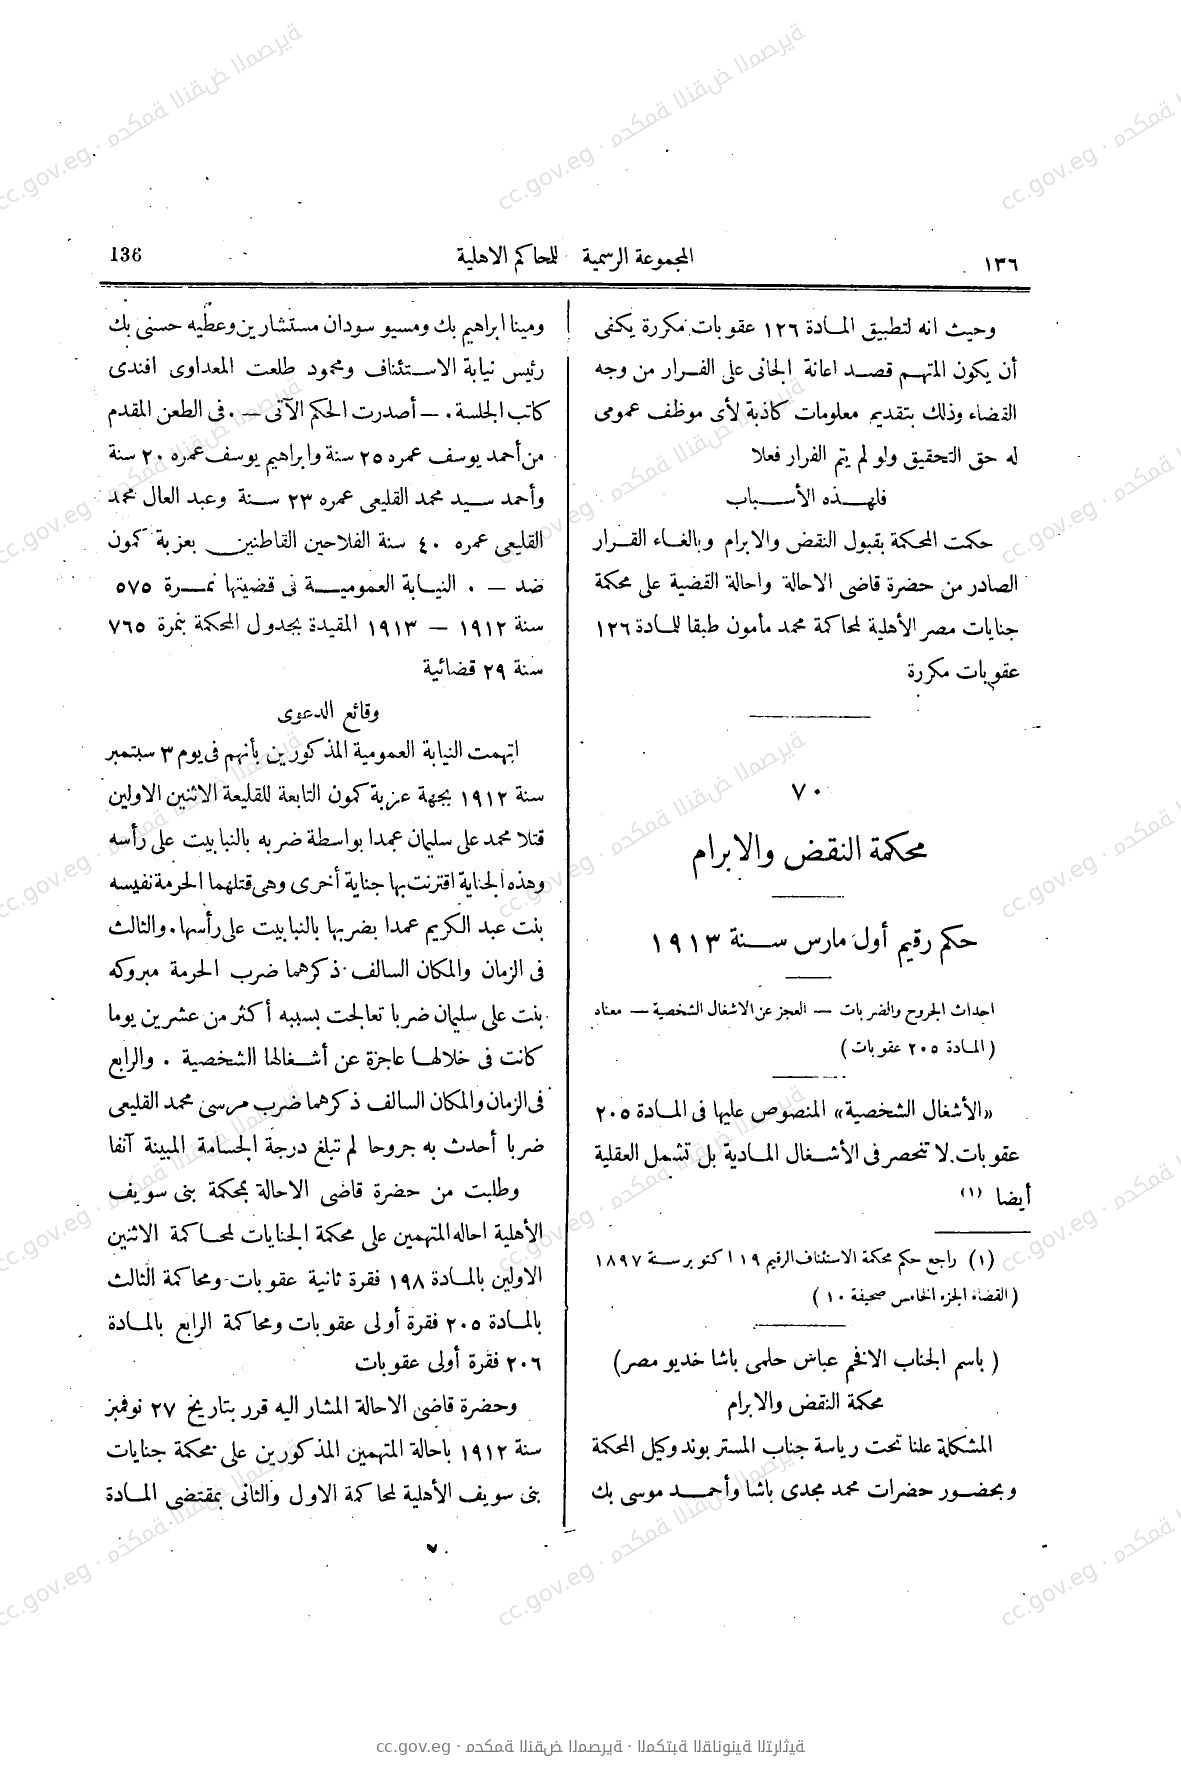 ١٣٦
المجموعة الرسمية للمحاكم الاهلية
136
وحيث انه لتطبيق المادة ١٢٦ عقوبات مكررة يكفى
أن يكون المتهم قصد اعانة الجانى على الفرار من وجه
القضاء وذلك بتقديم معلومات كاذبة لأى موظف عمومى
له حق التحقيق ولو لم يتم الفرار فعلا
فلهذه الأسباب
حكمت المحكمة بقبول النقض والابرام وبالغاء القرار
الصادر من حضرة قاضى الاحالة واحالة القضية على محكمة
جنايات مصر الأهلية لمحاكمة محمد مأمون طبقا للمادة ١٢٦
عقوبات مكررة
٧٠
محكمة النقض والابرام
حكم رقيم أول مارس سنة ١٩١٣
احداث الجروح والضربات — العجز عن الاشغال الشخصية — معناه
(المادة ٢٠٥ عقوبات)
«الأشغال الشخصية» المنصوص عليها فى المادة ٢٠٥
عقوبات لا تنحصر فى الأشغال المادية بل تشمل العقلية
أيضا (١)
(١) راجع حكم محكمة الاستئناف الرقيم ١٩ اكتوبر سنة ١٨٩٧
(القضاء الجزء الخامس صحيفة ١٠)
(باسم الجناب الافخم عباس حلمى باشا خديو مصر)
محكمة النقض والابرام
المشكلة علنا تحت رياسة جناب المستر بوند وكيل المحكمة
وبحضور حضرات محمد مجدى باشا وأحمد موسى بك
ومينا ابراهيم بك ومسيو سودان مستشارين وعطيه حسنى بك
رئيس نيابة الاستئناف ومحمود طلعت المعداوى افندى
كاتب الجلسة . — أصدرت الحكم الآتى — . فى الطعن المقدم
من أحمد يوسف عمره ٢٥ سنة وابراهيم يوسف عمره ٢٠ سنة
وأحمد سيد محمد القليعى عمره ٢٣ سنة وعبد العال محمد
القليعى عمره ٤٠ سنة الفلاحين القاطنين بعزبة كمون
ضد — . النيابة العمومية فى قضيتها نمرة ٥٧٥
سنة ١٩١٢ — ١٩١٣ المقيدة بجدول المحكمة بنمرة ٧٦٥
سنة ٢٩ قضائية
وقائع الدعوى
اتهمت النيابة العمومية المذكورين بأنهم فى يوم ٣ سبتمبر
سنة ١٩١٢ بجهة عزبة كمون التابعة للقليعة الاثنين الاولين
قتلا محمد على سليمان عمدا بواسطة ضربه بالنبابيت على رأسه
وهذه الجناية اقترنت بها جناية أخرى وهى قتلهما الحرمة نفيسه
بنت عبد الكريم عمدا بضربها بالنبابيت على رأسها . والثالث
فى الزمان والمكان السالف ذكرهما ضرب الحرمة مبروكه
بنت على سليمان ضربا تعالجت بسببه أكثر من عشرين يوما
كانت فى خلالها عاجزة عن أشغالها الشخصية . والرابع
فى الزمان والمكان السالف ذكرهما ضرب مرسى محمد القليعى
ضربا أحدث به جروحا لم تبلغ درجة الجسامة المبينة آنفا
وطلبت من حضرة قاضى الاحالة بمحكمة بنى سويف
الأهلية احاله المتهمين على محكمة الجنايات لمحاكمة الاثنين
الاولين بالمادة ١٩٨ فقرة ثانية عقوبات ومحاكمة الثالث
بالمادة ٢٠٥ فقرة أولى عقوبات ومحاكمة الرابع بالمادة
٢٠٦ فقرة أولى عقوبات
وحضرة قاضى الاحالة المشار اليه قرر بتاريخ ٢٧ نوفمبر
سنة ١٩١٢ باحالة المتهمين المذكورين على محكمة جنايات
بنى سويف الأهلية لمحاكمة الاول والثانى بمقتضى المادة
cc.gov.eg · محكمة النقض المصرية · المكتبة القانونية التراثية